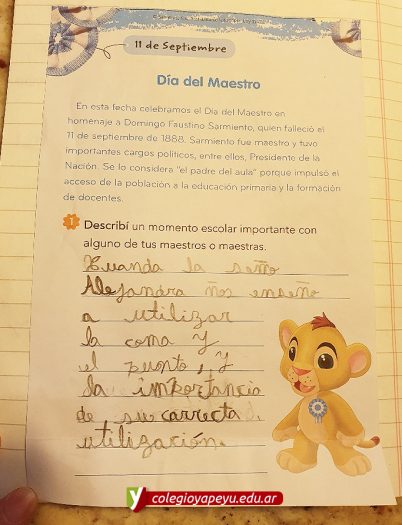 11 de Septiembre
Día del Maestro
En esta fecha celebramos el Día del Maestro en
homenaje a Domingo Faustino Sarmiento, quien falleció el
11 de septiembre de 1888. Sarmiento fue maestro y tuvo
importantes cargos políticos, entre ellos, Presidente de la
Nación. Se lo considera "el padre del aula" porque impulsó el
acceso de la población a la educación primaria y la formación
de docentes.
1 Describí un momento escolar importante con
alguno de tus maestros o maestras.
la seño
Alejandra nos enseño
a utilizar
la coma y
el punto, y
la importancia
de su carrecta
utilización.
colegioyapeyu.edu.ar